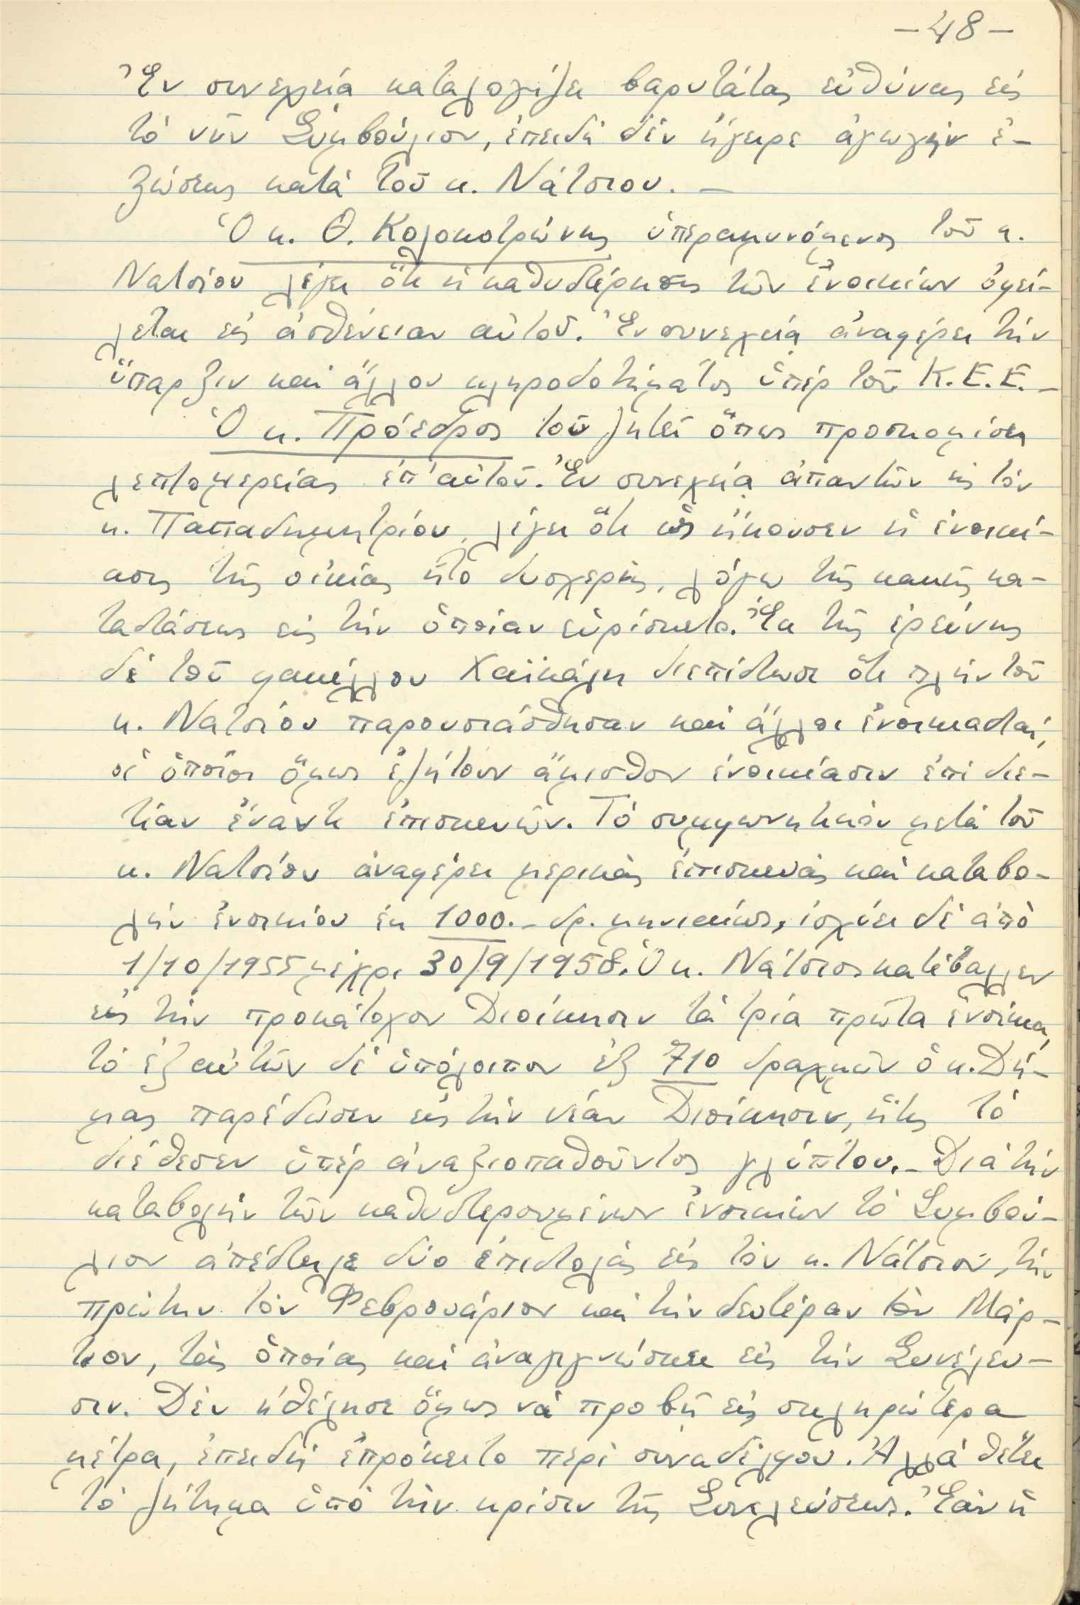 -48-
Ἐν συνεχείᾳ καταλογίζει βαρυτάτας εὐθύνας εἰς
τό νῦν Συμβούλιον, ἐπειδή δέν ἤγειρε ἀγωγήν ἐ-
ξώσεως κατά τοῦ κ. Νάτσιου. -
Ὁ κ. Θ. Κολοκοτρώνης ὑπεραμυνόμενος τοῦ κ.
Νατσίου λέγει ὅτι ἡ καθυστέρησις τῶν ἐνοικίων ὀφεί-
λεται εἰς ἀσθένειαν αὐτοῦ. Ἐν συνεχείᾳ ἀναφέρει τήν
ὕπαρξιν καί ἄλλου κληροδοτήματος ὑπέρ τοῦ Κ.Ε.Ε. -
Ὁ κ. Πρόεδρος τοῦ ζητεῖ ὅπως προσκομίσῃ
λεπτομερείας ἐπ' αὐτοῦ. Ἐν συνεχείᾳ ἀπαντῶν εἰς τόν
κ. Παπαδημητρίου, λέγει ὅτι ὡς ἤκουσεν ἡ ἐνοικί-
ασις τῆς οἰκίας ἦτο δυσχερής, λόγῳ τῆς κακῆς κα-
ταστάσεως εἰς τήν ὁποίαν εὑρίσκετο. Ἐκ τῆς ἐρεύνης
δέ τοῦ φακέλλου Χαϊκάλη διεπίστωσε ὅτι πλήν τοῦ
κ. Νατσίου παρουσιάσθησαν καί ἄλλοι ἐνοικιασταί,
οἱ ὁποῖοι ὅμως ἐζήτουν ἄμισθον ἐνοικίασιν ἐπί διε-
τίαν ἔναντι ἐπισκευῶν. Τό συμφωνητικόν μετά τοῦ
κ. Νατσίου ἀναφέρει μερικάς ἐπισκευάς καί καταβο-
λήν ἐνοικίου ἐκ 1000.- δρ. μηνιαίως, ἰσχύει δέ ἀπό
1/10/1955 μέχρι 30/9/1958. Ὁ κ. Νάτσιος κατέβαλλεν
εἰς τήν προκάτοχον Διοίκησιν τά τρία πρῶτα ἐνοίκια,
τό ἐξ αὐτῶν δέ ὑπόλοιπον ἐξ 710 δραχμῶν ὁ κ. Δή-
μας παρέδωσεν εἰς τήν νέαν Διοίκησιν, ἥτις τό
διέθεσεν ὑπέρ ἀναξιοπαθοῦντος γλύπτου. - Διά τήν
καταβολήν τῶν καθυστερουμένων ἐνοικίων τό Συμβού-
λιον ἀπέστειλε δύο ἐπιστολάς εἰς τόν κ. Νάτσιον, τήν
πρώτην τόν Φεβρουάριον καί τήν δευτέραν τόν Μάρ-
τιον, τάς ὁποίας καί ἀναγιγνώσκει εἰς τήν Συνέλευ-
σιν. Δέν ἠθέλησε ὅμως νά προβῇ εἰς σκληρότερα
μέτρα, ἐπειδή ἐπρόκειτο περί συναδέλφου. Ἀλλά θέτει
τό ζήτημα ὑπό τήν κρίσιν τῆς Συνελεύσεως. Ἐάν ἡ